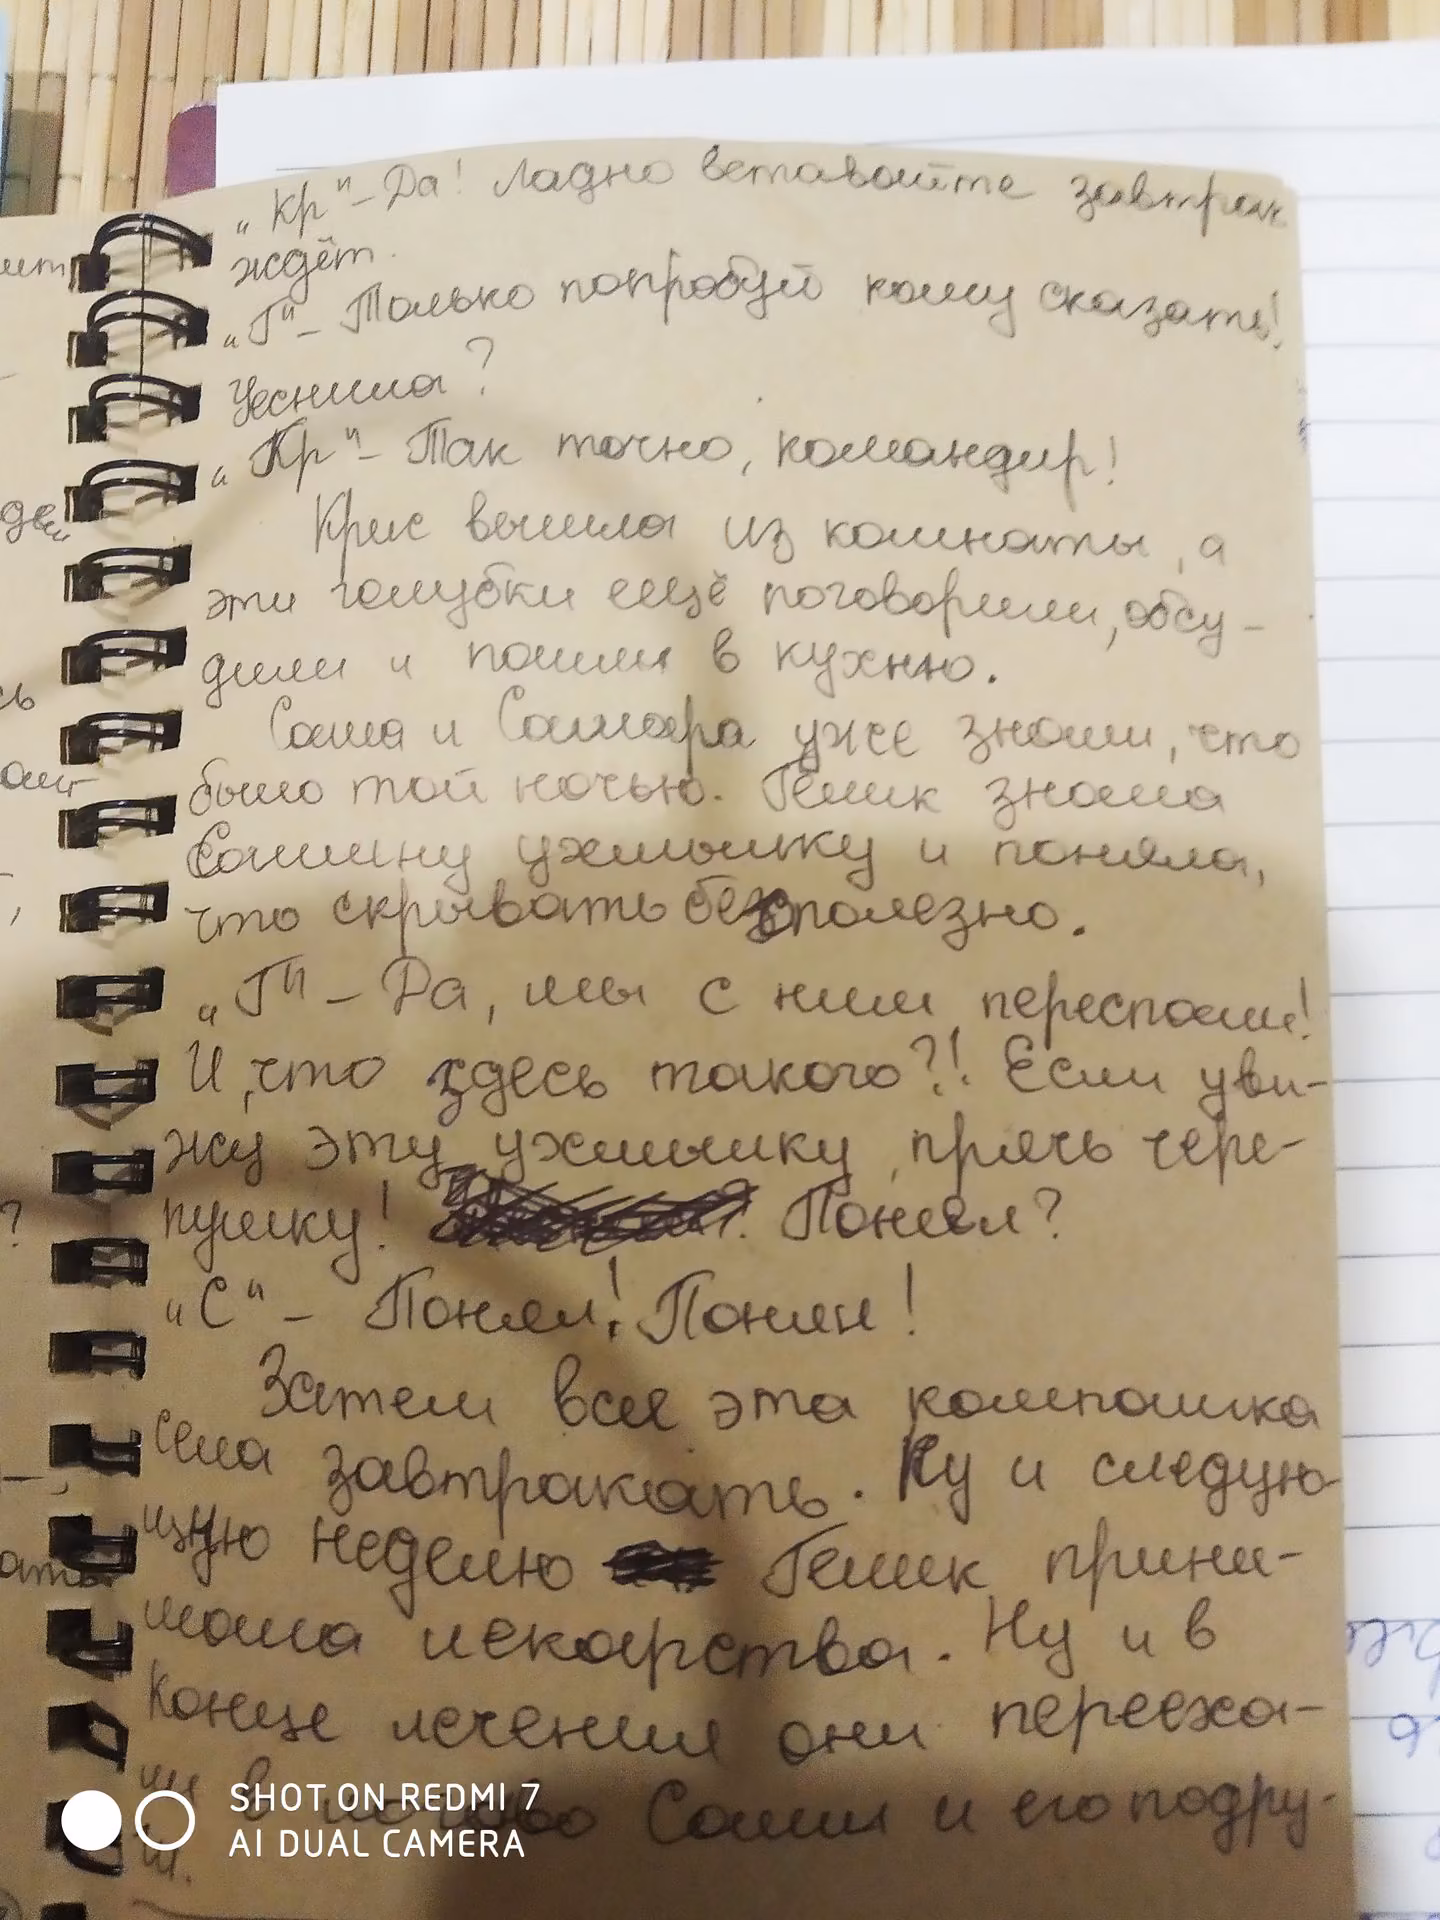 „Кр"- Да! Ладно вставайте завтрак
ждёт.
„Г"- Только попробуй кому сказать!
Уеснила?
„Кр"- Так точно, командир!
Крис вышла из комнаты, а
эти голубки ещё поговорили, обсу-
дили и пошли в кухню.
Саша и Самара уже знали, что
было той ночью. Гешик знала
Сашину ухмылку и поняла,
что скрывать бесполезно.
„Г" - Да, мы с ним переспали!
И, что здесь такого?! Если уви-
жу эту ухмылку, прячь чере-
пушку! Понял?
„С" - Понял! Понял!
Затем вся эта компашка
села завтракать. Ну и следую-
щую неделю Гешик прини-
мала лекарства. Ну и в
конце лечения они перееха-
ли в Саши и его подру-
SHOT ON REDMI 7
AI DUAL CAMERA